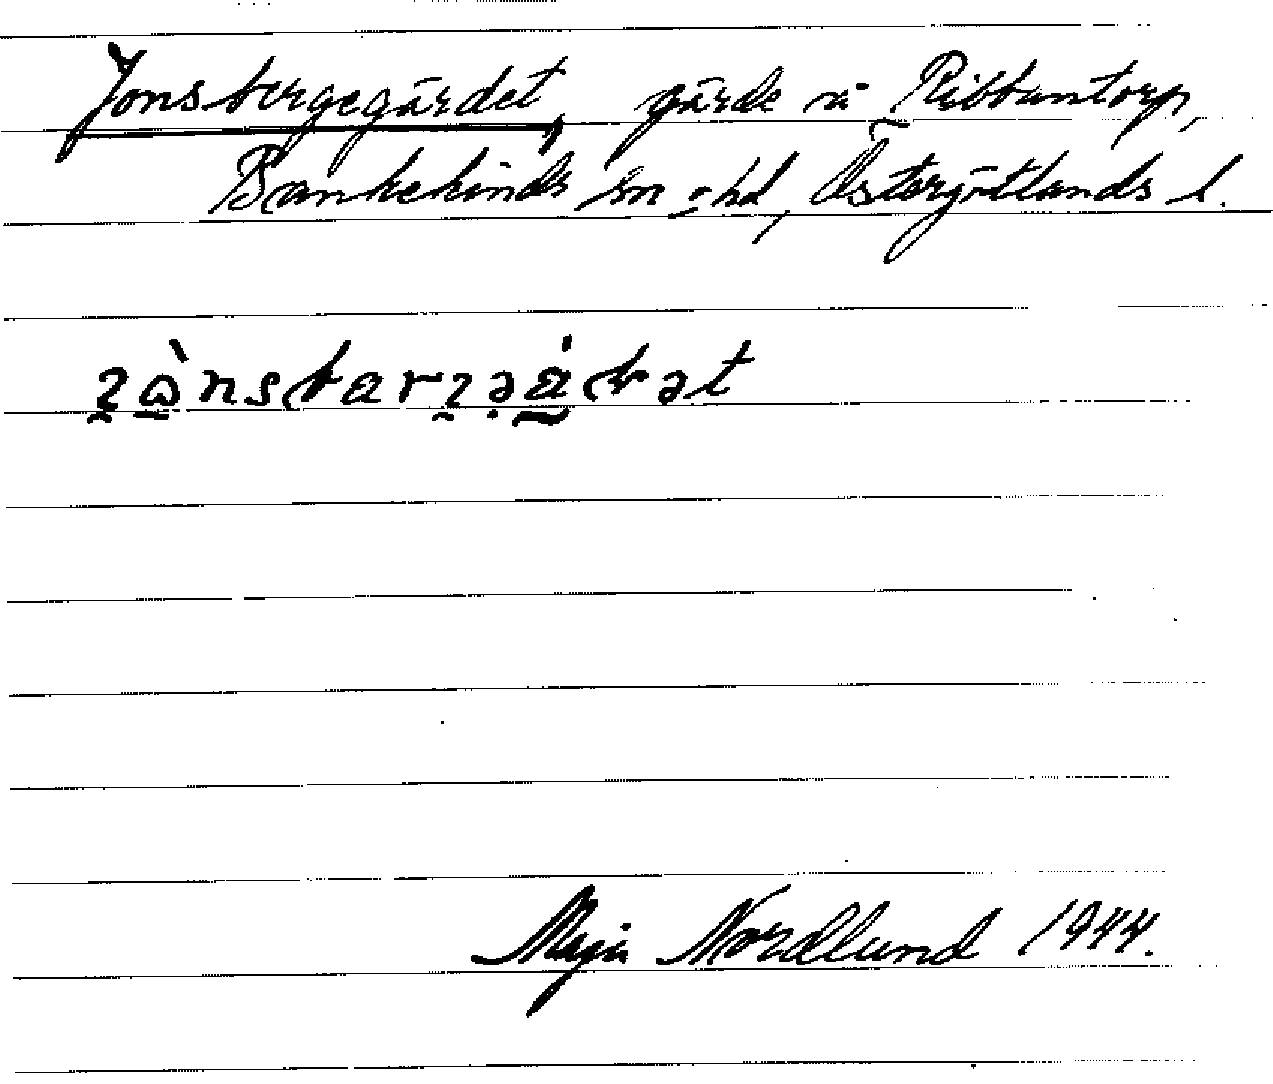 Jonsbergegärdet, gärde på Ribbantorp,
Bankekinds sn o hd, Östergötlands l.
Maja Nordlund 1944.